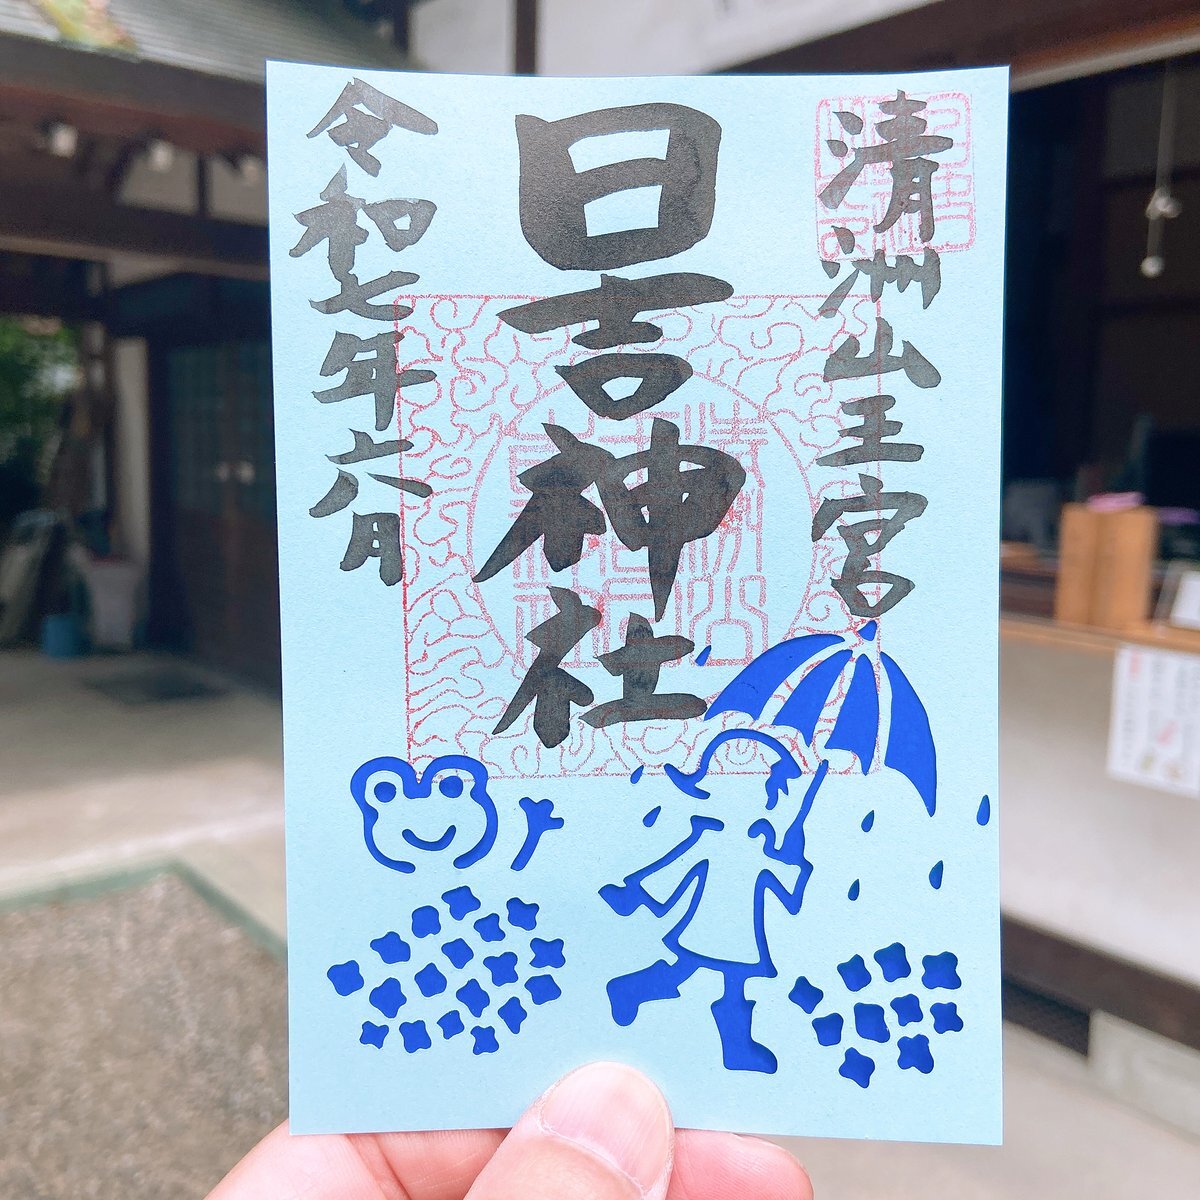 清洲山王宮
日吉神社
令和七年六月